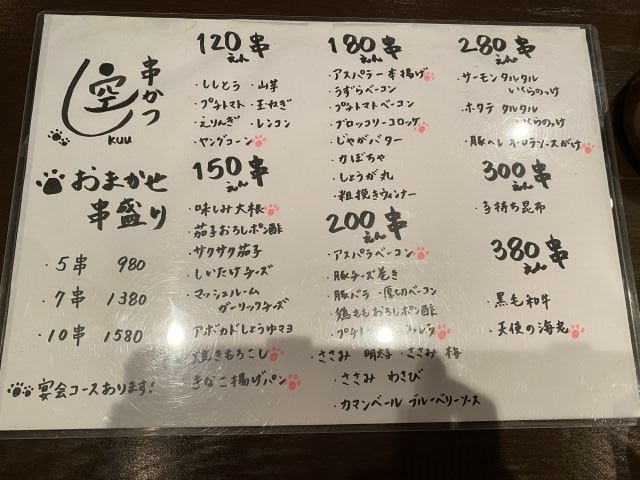 串かつ
空
kuu
おまかせ
串盛り
・5串 980
・7串 1380
・10串 1580
宴会コースあります!
120えん串
・ししとう ・山芋
・プチトマト ・玉ねぎ
・えりんぎ ・レンコン
・ヤングコーン
150えん串
・味しみ大根
・茄子おろしポン酢
・サクサク茄子
・しいたけチーズ
・マッシュルーム
ガーリックチーズ
アボカドしょうゆマヨ
焼きもろこし
きなこ揚げパン
180えん串
・アスパラ一本揚げ
・うずらベーコン
・プチトマトベーコン
・ブロッコリーコロッケ
・じゃがバター
・かぼちゃ
・しょうが丸
・粗挽きウィンナー
200えん串
・アスパラベーコン
・豚チーズ巻き
・豚バラ ・厚切ベーコン
・鶏ももおろしポン酢
・ささみ 明太子 ・ささみ 梅
・ささみ わさび
・カマンベール ブルーベリーソース
280えん串
・サーモンタルタル
いくらのっけ
・ホタテ タルタル
いくらのっけ
・豚ヘレ オロラソースがけ
300えん串
・子持ち昆布
380えん串
・黒毛和牛
・天使の海老